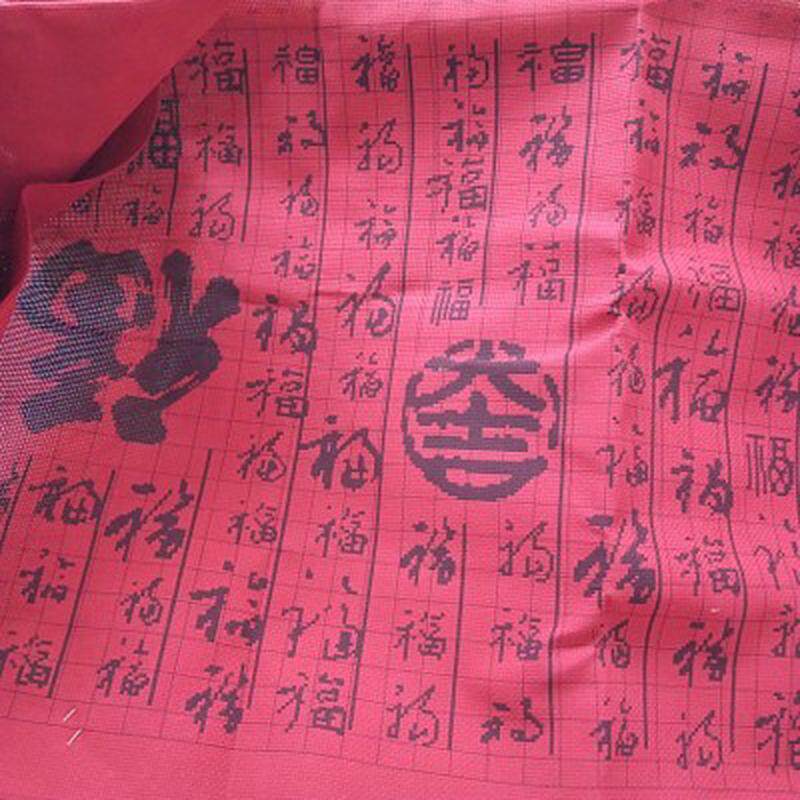 福福福福福福福福福
福福福福福福福福福
福福福福福福福福福
福福福福
福福福福福
大吉
福福福
福福福
福福福福福福福福福
福福福福福福福福福福
福福福
福福
福
福福福
福福福